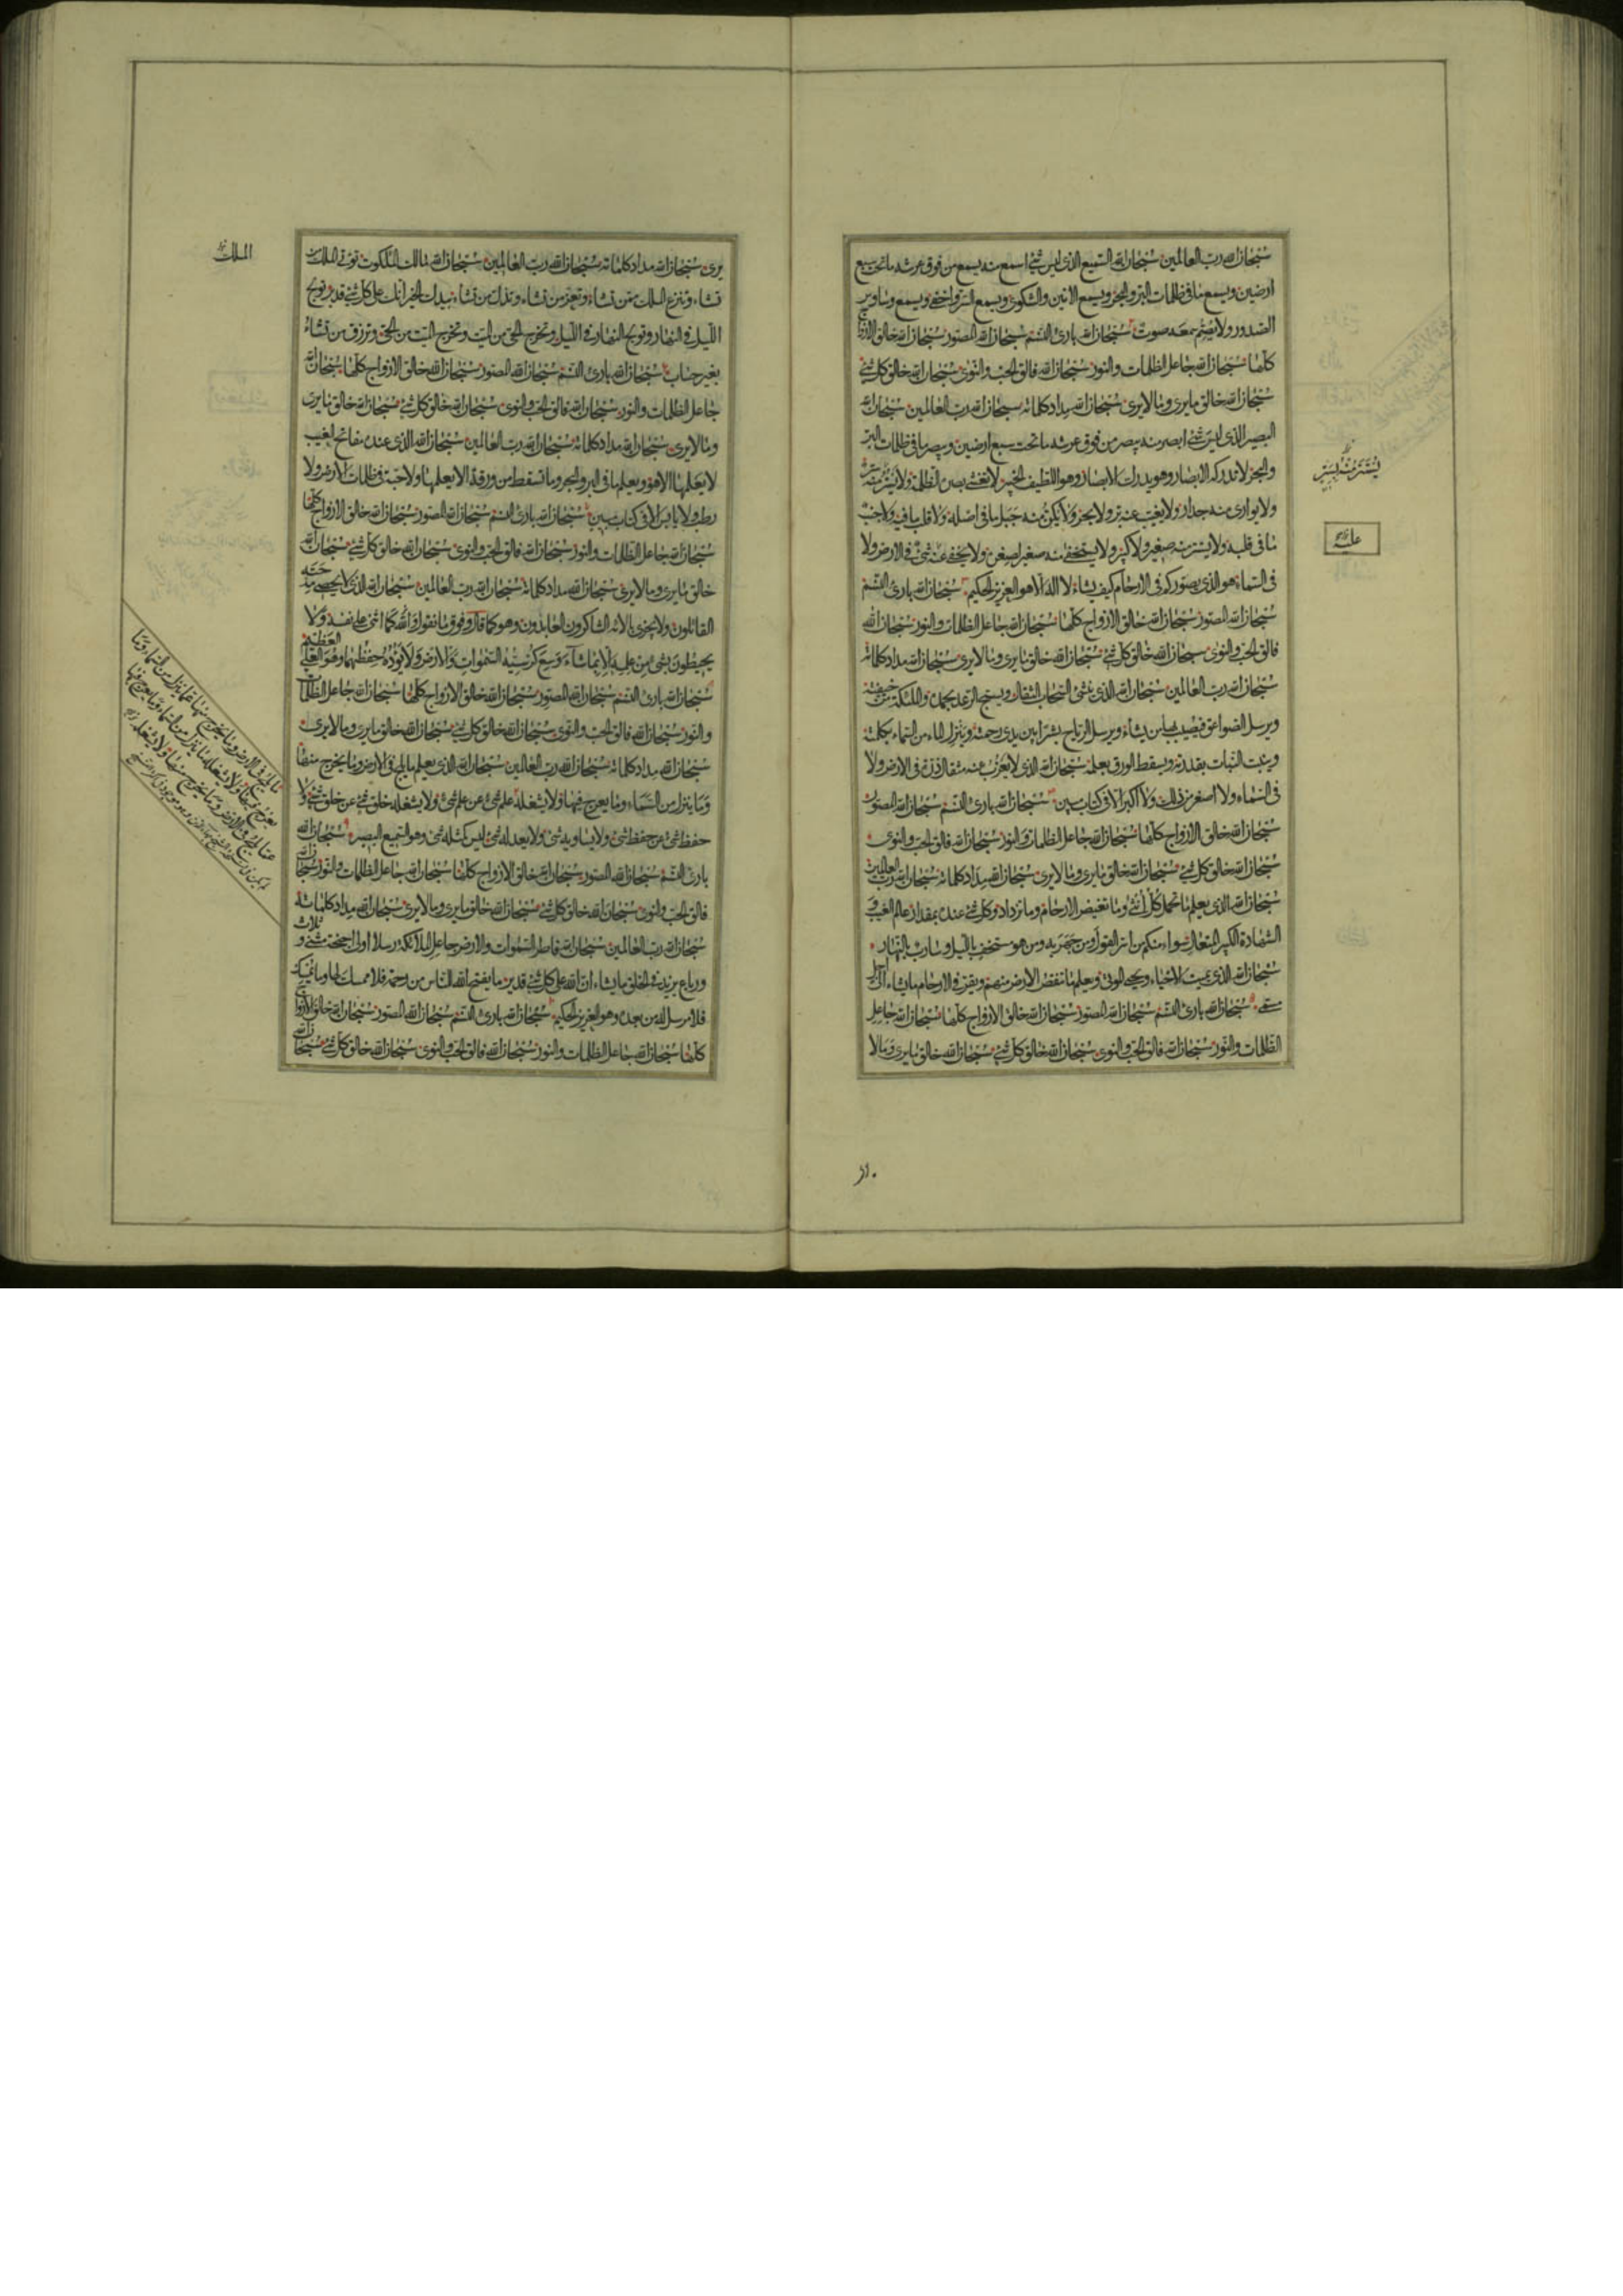 سُبْحانَ اللّه ربّ العالمين سُبْحانَ اللّه السّميع الذى ليس شئ اسمع منه يسمع من فوق عرشه ما تحت سبع
ارضين ويسمع ما فى ظلمات البرّ والبحر ويسمع الانين والشكوى ويسمع السرّ واخفى ويسمع وساوس
الصّدور ولا يصمّ سمعه صوت سُبْحانَ اللّه بارئ النّسم سُبْحانَ اللّه المصوّر سُبْحانَ اللّه خالق الازواج
كلّها سُبْحانَ اللّه جاعل الظلمات والنور سُبْحانَ اللّه فالق الحبّ والنّوى سُبْحانَ اللّه خالق كلّ شئ
سُبْحانَ اللّه خالق ما يرى وما لا يرى سُبْحانَ اللّه مداد كلماته سُبْحانَ اللّه ربّ العالمين سُبْحانَ اللّه
البصير الذى ليس شئ ابصر منه يبصر من فوق عرشه ما تحت سبع ارضين ويبصر ما فى ظلمات البرّ
والبحر لا تدركه الابصار وهو يدرك الابصار وهو اللّطيف الخبير لا تغشى بصره الظّلمة ولا يستتر منه بستر
ولا يوارى منه جدار ولا يغيب عنه برّ ولا بحر ولا يكنّ منه جبل ما فى اصله ولا قلب ما فيه ولا جنب
ما فى قلبه ولا يستتر منه صغير ولا كبير ولا يستخفى منه صغير لصغره ولا يخفى عليه شئ فى الارض ولا
فى السّماء هو الذى يصوّركم فى الارحام كيف يشاء لا اله الّا هو العزيز الحكيم سُبْحانَ اللّه بارئ النّسم
سُبْحانَ اللّه المصوّر سُبْحانَ اللّه خالق الازواج كلّها سُبْحانَ اللّه جاعل الظلمات والنور سُبْحانَ اللّه
فالق الحبّ والنّوى سُبْحانَ اللّه خالق كلّ شئ سُبْحانَ اللّه خالق ما يرى وما لا يرى سُبْحانَ اللّه مداد كلماته
سُبْحانَ اللّه ربّ العالمين سُبْحانَ اللّه الذى ينشئ السّحاب الثقال ويسبّح الرّعد بحمده والملئكة من خيفته
ويرسل الصّواعق فيصيب بها من يشاء ويرسل الرّياح بشرا بين يدى رحمته وينزل الماء من السّماء بكلمته
وينبت النّبات بقدرته ويسقط الورق بعلمه سُبْحانَ اللّه الذى لا يعزب عنه مثقال ذرّة فى الارض ولا
فى السّماء ولا اصغر من ذلك ولا اكبر الّا فى كتاب مبين سُبْحانَ اللّه بارئ النّسم سُبْحانَ اللّه المصوّر
سُبْحانَ اللّه خالق الازواج كلّها سُبْحانَ اللّه جاعل الظلمات والنور سُبْحانَ اللّه فالق الحبّ والنّوى
سُبْحانَ اللّه خالق كلّ شئ سُبْحانَ اللّه خالق ما يرى وما لا يرى سُبْحانَ اللّه مداد كلماته سُبْحانَ اللّه ربّ العالمين
سُبْحانَ اللّه الذى يعلم ما تحمل كلّ انثى وما تغيض الارحام وما تزداد وكلّ شئ عنده بمقدار عالم الغيب و
الشّهادة الكبير المتعال سواء منكم من اسرّ القول ومن جهر به ومن هو مستخف باللّيل وسارب بالنّهار
سُبْحانَ اللّه الذى يميت الاحياء ويحيى الموتى ويعلم ما تنقص الارض منهم ويقرّ فى الارحام ما يشاء الى اجل
مسمّى سُبْحانَ اللّه بارئ النّسم سُبْحانَ اللّه المصوّر سُبْحانَ اللّه خالق الازواج كلّها سُبْحانَ اللّه جاعل
الظّلمات والنّور سُبْحانَ اللّه فالق الحبّ والنّوى سُبْحانَ اللّه خالق كلّ شئ سُبْحانَ اللّه خالق ما يرى وما لا
عليه
يرى سُبْحانَ اللّه مداد كلماته سُبْحانَ اللّه ربّ العالمين سُبْحانَ اللّه مالك الملكوت تؤتى الملك من
تشاء وتنزع الملك ممّن تشاء وتعزّ من تشاء وتذلّ من تشاء بيدك الخير انّك على كلّ شئ قدير تولج
اللّيل فى النهار وتولج النهار فى اللّيل وتخرج الحىّ من الميّت وتخرج الميّت من الحىّ وترزق من تشاء
بغير حساب سُبْحانَ اللّه بارئ النّسم سُبْحانَ اللّه المصوّر سُبْحانَ اللّه خالق الازواج كلّها سُبْحانَ اللّه
جاعل الظلمات والنور سُبْحانَ اللّه فالق الحبّ والنوى سُبْحانَ اللّه خالق كلّ شئ سُبْحانَ اللّه خالق ما يرى
وما لا يرى سُبْحانَ اللّه مداد كلماته سُبْحانَ اللّه ربّ العالمين سُبْحانَ اللّه الذى عنده مفاتح الغيب
لا يعلمها الّا هو ويعلم ما فى البر والبحر وما تسقط من ورقة الّا يعلمها ولا حبّة فى ظلمات الارض ولا
رطب ولا يابس الّا فى كتاب مبين سُبْحانَ اللّه بارئ النّسم سُبْحانَ اللّه المصوّر سُبْحانَ اللّه خالق الازواج كلّها
سُبْحانَ اللّه جاعل الظّلمات والنور سُبْحانَ اللّه فالق الحبّ والنوى سُبْحانَ اللّه خالق كلّ شئ سُبْحانَ اللّه
خالق ما يرى وما لا يرى سُبْحانَ اللّه مداد كلماته سُبْحانَ اللّه ربّ العالمين سُبْحانَ اللّه الذى لا يحصى مدحته
القائلون ولا يجزى بالائه الشاكرون العابدون وهو كما قال وفوق ما نقول واللّه كما اثنى على نفسه ولا
يحيطون بشئ من علمه الّا بما شاء وسع كرسيّه السّموات والارض ولا يؤده حفظهما وهو العلىّ العظيم
سُبْحانَ اللّه بارئ النّسم سُبْحانَ اللّه المصوّر سُبْحانَ اللّه خالق الازواج كلّها سُبْحانَ اللّه جاعل الظّلمات
والنّور سُبْحانَ اللّه فالق الحبّ والنّوى سُبْحانَ اللّه خالق كلّ شئ سُبْحانَ اللّه خالق ما يرى وما لا يرى
سُبْحانَ اللّه مداد كلماته سُبْحانَ اللّه ربّ العالمين سُبْحانَ اللّه الذى يعلم ما يلج فى الارض وما يخرج منها
وما ينزل من السّماء وما يعرج فيها ولا يشغله علم شئ عن علم شئ ولا يشغله خلق شئ عن خلق شئ ولا
حفظ شئ عن حفظ شئ ولا يساويه شئ ولا يعدله شئ ليس كمثله شئ وهو السّميع البصير سُبْحانَ اللّه
بارئ النّسم سُبْحانَ اللّه المصوّر سُبْحانَ اللّه خالق الازواج كلّها سُبْحانَ اللّه جاعل الظلمات والنّور سُبْحانَ اللّه
فالق الحبّ والنوى سُبْحانَ اللّه خالق كلّ شئ سُبْحانَ اللّه خالق ما يرى وما لا يرى سُبْحانَ اللّه مداد كلماته
سُبْحانَ اللّه ربّ العالمين سُبْحانَ اللّه فاطر السّموات والارض جاعل الملائكة رسلا اولى اجنحة مثنى وثلاث
ورباع يزيد فى الخلق ما يشاء انّ اللّه على كلّ شئ قدير ما يفتح اللّه للنّاس من رحمة فلا ممسك لها وما يمسك
فلا مرسل له من بعده وهو العزيز الحكيم سُبْحانَ اللّه بارئ النّسم سُبْحانَ اللّه المصوّر سُبْحانَ اللّه خالق الازواج
كلّها سُبْحانَ اللّه جاعل الظلمات والنور سُبْحانَ اللّه فالق الحبّ والنوى سُبْحانَ اللّه خالق كلّ شئ سُبْحانَ اللّه
الملك